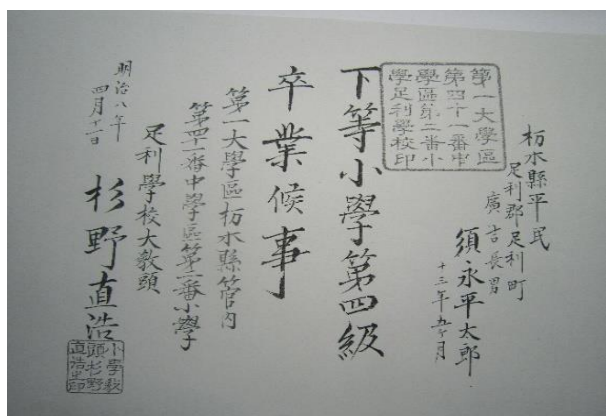 栃木縣平民
足利郡足利町
廣吉長男
須永平太郎
十三年五ケ月
第一大學區
第四十一番中
學區第二番小
學足利學校印
下等小學第四級
卒業候事
第一大學區栃木縣管内
第四十一番中學區第二番小學
足利學校大教頭
杉野直浩
明治八年
四月十二日
小學教
頭杉野
直浩之印